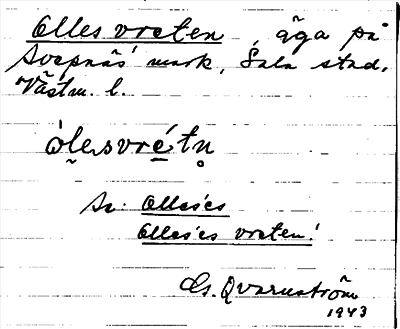 Olles vreten, äga på
Svepnäs' mark, Sala stad.
Västm. l.
ólesvrétn
Av. Olles'es
Olles'es vreten!
Gs. Qvarnström
1943